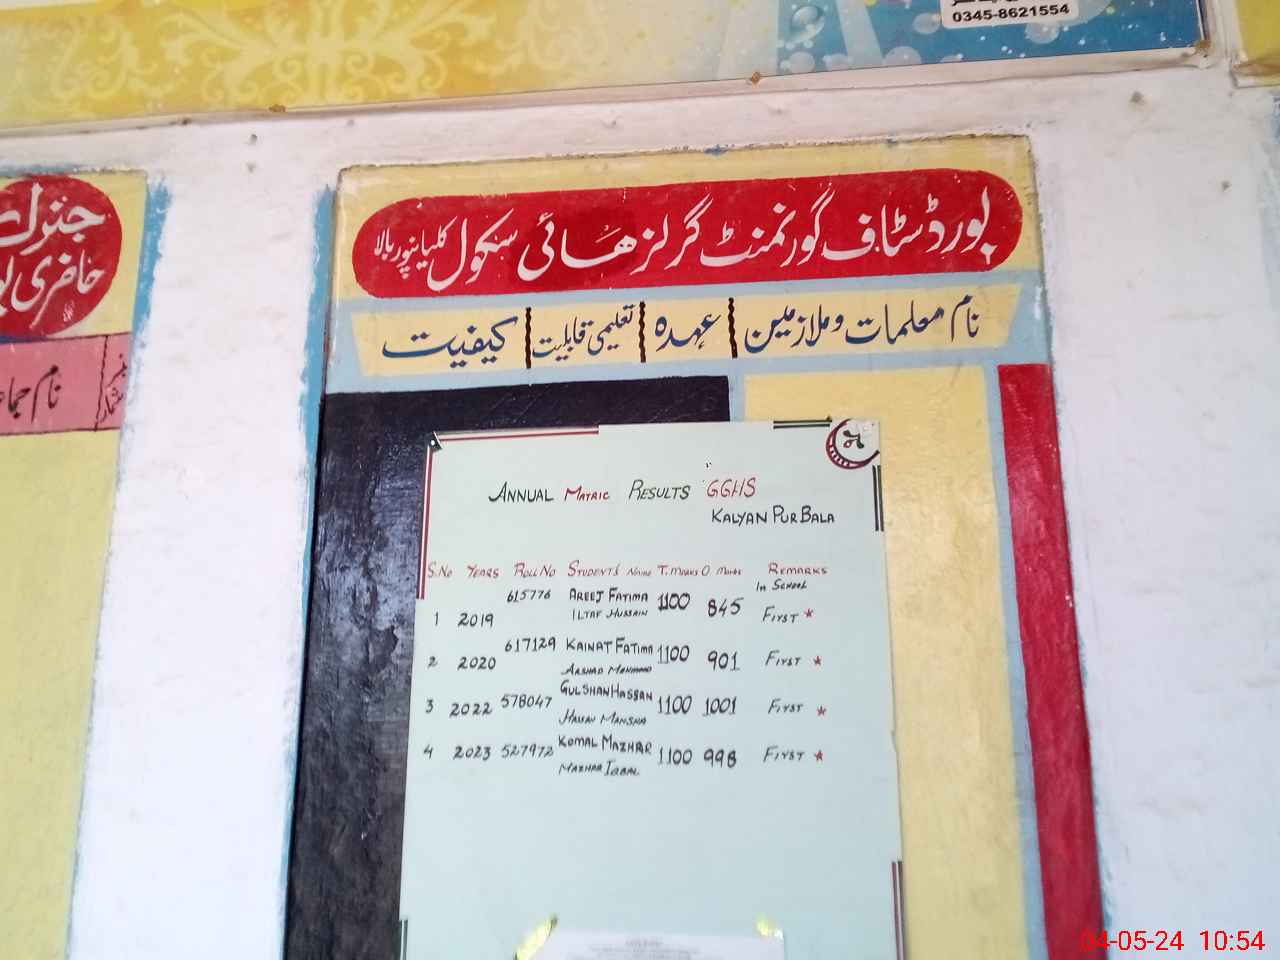 0345-8621554
جنرل
حاضری
نام
بورڈ سٹاف گورنمنٹ گرلز ھائی سکول کلیانپور بالا
نام معلمات و ملازمین عہدہ تعلیمی قابلیت کیفیت
ANNUAL MATRIC RESULTS GGHS
KALYAN PUR BALA
S.No YEARS ROLL No STUDENT'S Name T.MARKS O Marks REMARKS
In SCHOOL
1 2019 615776 AREEJ FATIMA 1100 845 First
ILTAF HUSSAIN
2 2020 617129 KAINAT FATIMA 1100 901 First
ARSHAD MEHMOOD
3 2022 578047 GULSHAN HASSAN 1100 1001 First
HASSAN
4 2023 527972 KOMAL MAZHAR 1100 998 First
MAZHAR IQBAL
04-05-24 10:54